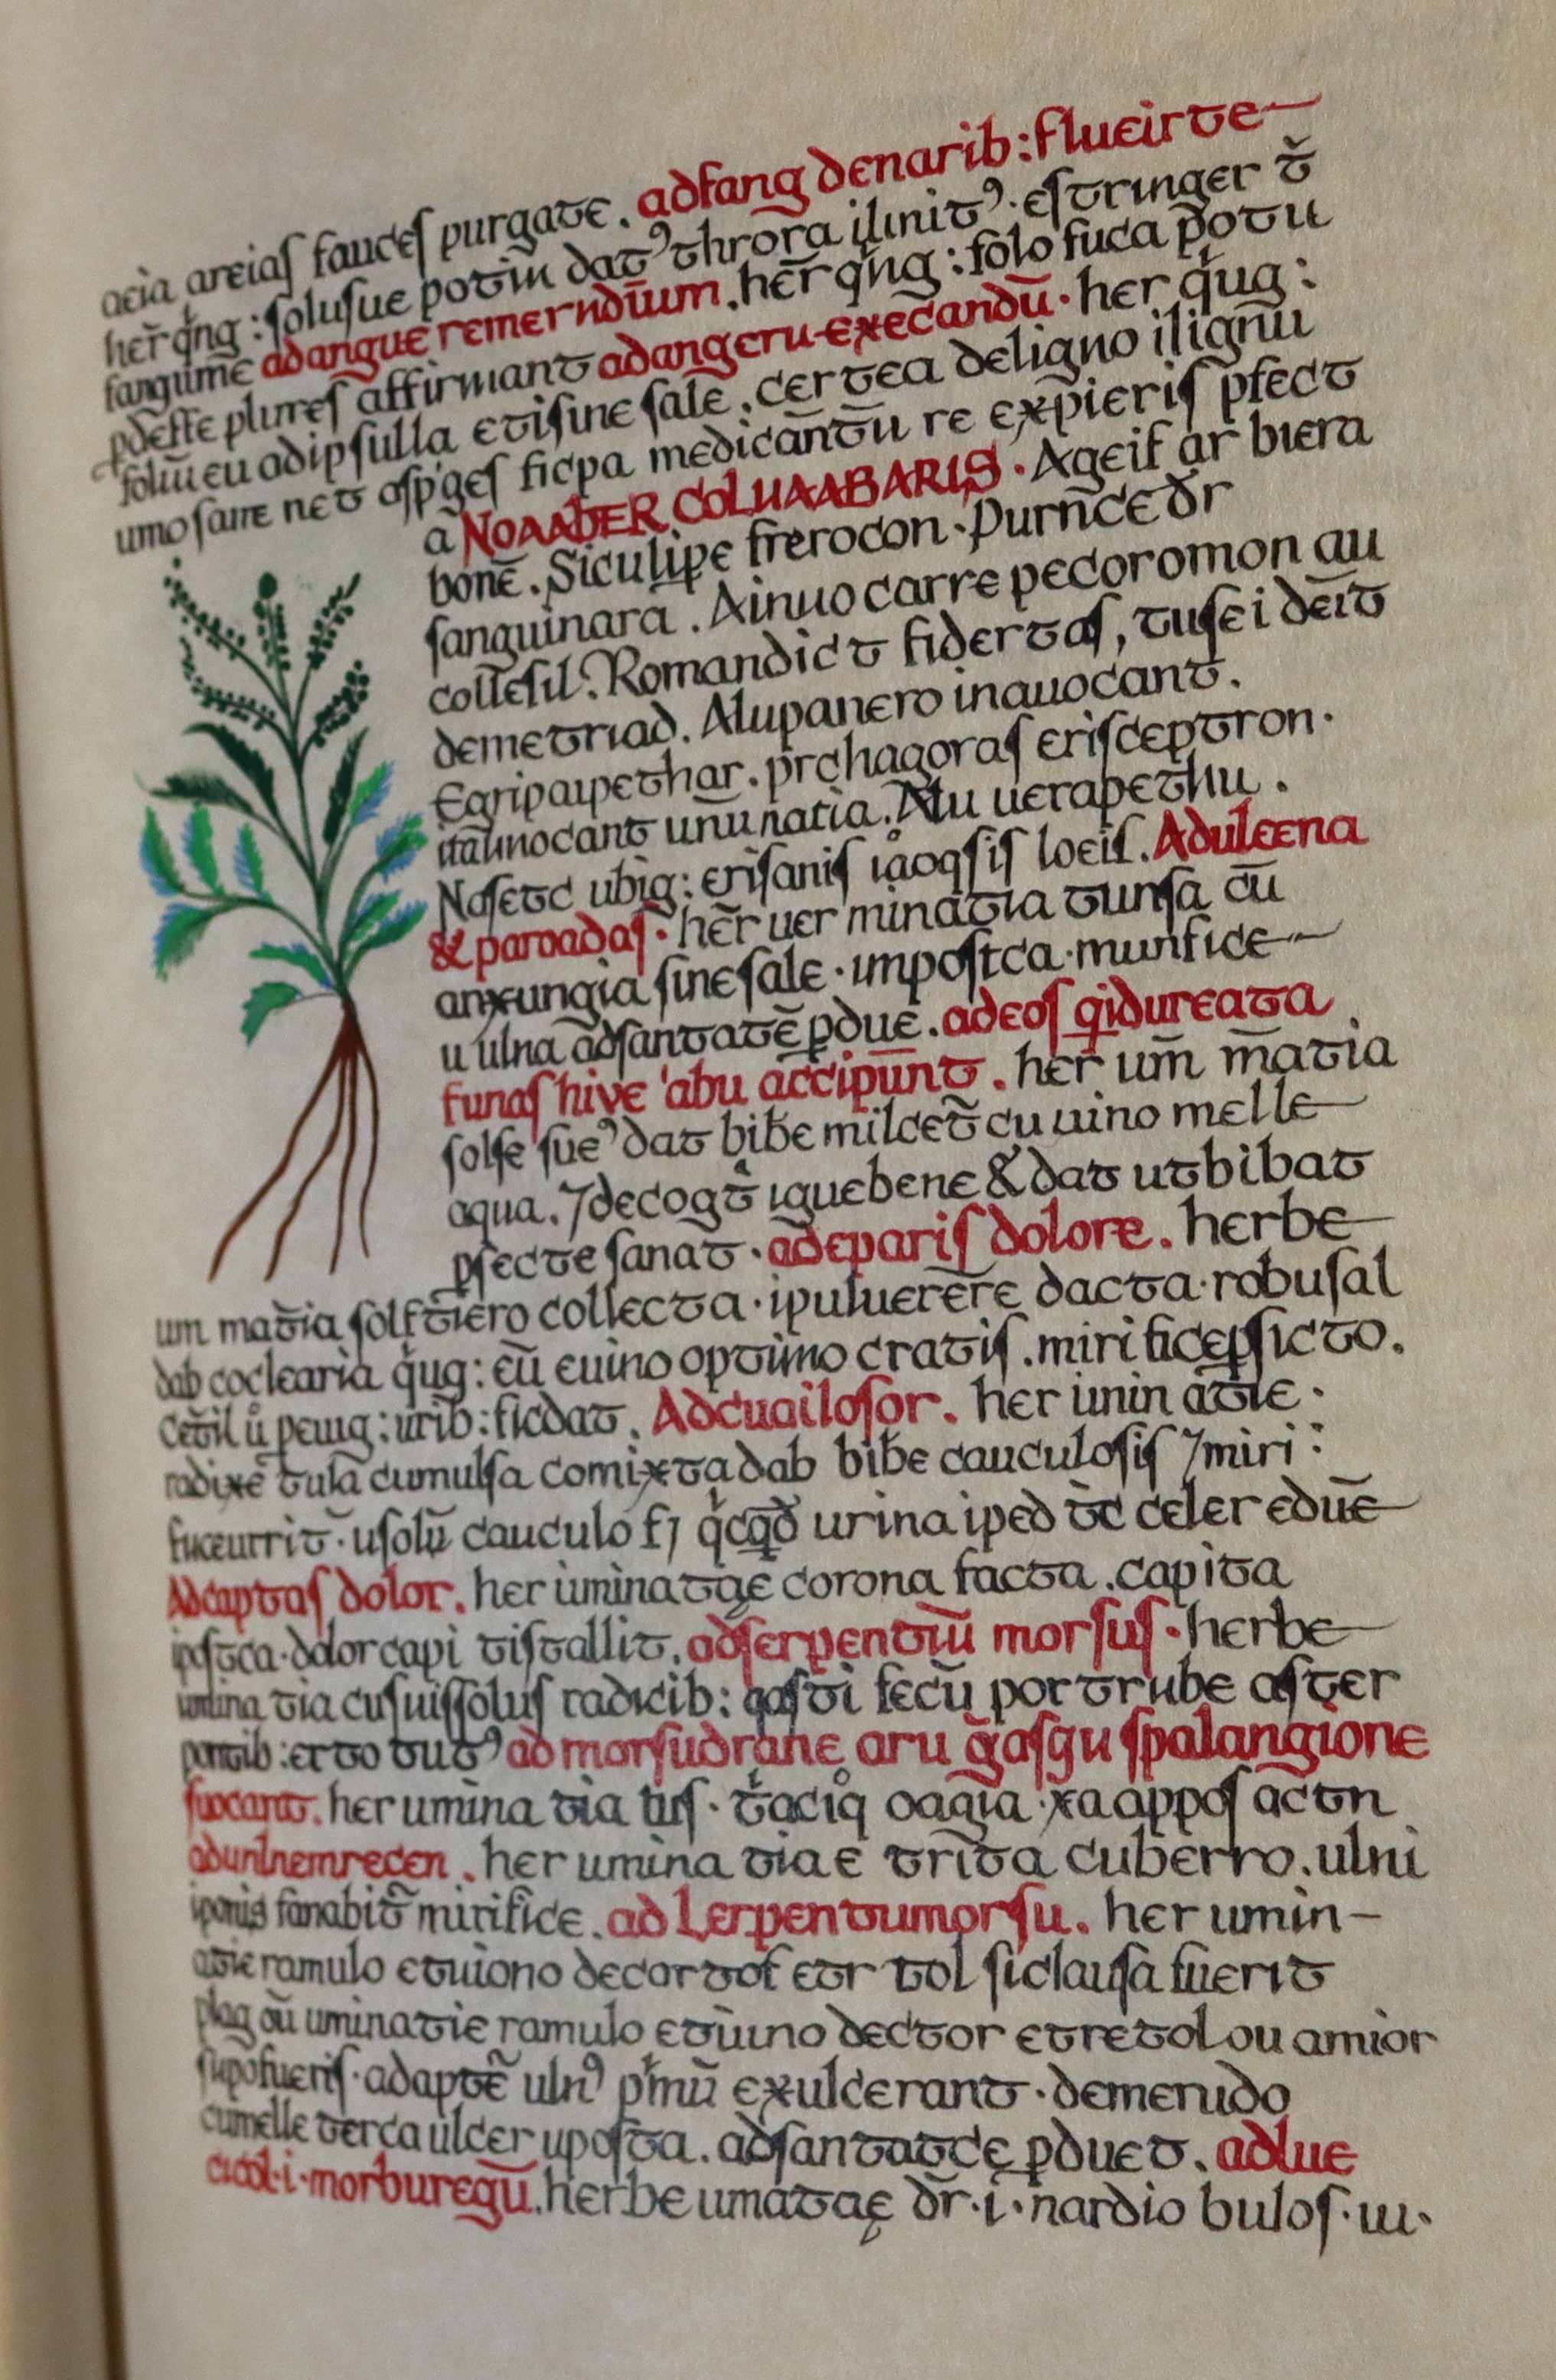 aeia areiaſ fauceſ purgate. adfang denarib: flueirte
her̃ qn̉g: ſoluſue potim̃ dat⁹ throra ilinit⁹. eſtringer t̃
fangume adangue remerndūm. her̃ qn̉g: folo fuca potu
pdeffe plureſ affirmant adangeru exec̄andū. her qủg:
foliū eu adipſulla etiſine ſale. certea deligno iligñiu
umoſarre net aſp'geſ ficpa medicāntū re exp̄ieriſ pfect
ā NOAABER COLUAABARIS. Ageif ar biera
bonē. Siculipe frerocon. Purn̄ce ðr
ſanguinara. Ainuo carre pecoromon au
colleſil. Romandict fidertaſ, tuſei dēit
demetriad. Alupanero inauocant.
Egripaipethar. prchagoraſ eriſceptron.
itālinocant unū natia. Alu uerapethu.
Naſetc ubig: eriſaniſ iåoqſiſ loeiſ. Aduleena
& paroadaſ. her̃ uer minatia tunſa cū
anxungia ſine ſale. impoſtca. munfice
u ulna ādſantatē pdue. adeoſ qidureata
funaſ hive 'abu accipūnt. her um̄ m̄atia
ſolſe ſue⁹ dat bibe milcet̃ cu uino melle
aqua. ⁊decogt̉ iguebene & dat utbibat
pſecte ſanat. adepariſ dolore. herbe
um mat̄ia ſolft̄iero collecta. ipuluerēre dacta. robuſal
dab coclearia qủg: eū euino optimo cratiſ. mirificepſicto.
cet̄il ů peuig: urib: ficdat. Adcuailoſor. her imin atīe.
radixē tulā cumulſa comixta dab bibe cauculoſiſ ⁊miri:
fuceurrit̃. uſolū cauculo f⁊ qc̉qð urina iped t̄c celer edūe
Adcaptaſ dolor. her iminatae corona facta. capita
ipſtca. dolorcapi tiſtallit. adſerpentiū morſuſ. herbe
umina tia cuſuiſſoluſ radicib: qaſti fecū portrube aſter
pontib: erto tut⁹ ad morſudrane aru ḡaſgu ſpalangione
ſuocant. her umina tia tuſ. t̉aciq̊ oagia. xaappoſ actn
adunlnemrecen. her umina tiae trīta cuberro. ulni
iponis fanabit̃ mirifice. ad Lerpentumorſu. her umin-
atie ramulo etuiono decartof etr tol ſiclauſa fuerit
plag oū uminatie ramulo etūino dector etretol ou amior
ſupofueriſ. adaptẽ uln⁹ pm̉ū exulcerant. demerudo
cumelle terca ulcer upoſta. adſantatcę pduet. adlue
cicol. i. morburegū. herbe umatae ðr. i. nardio buloſ. iu.